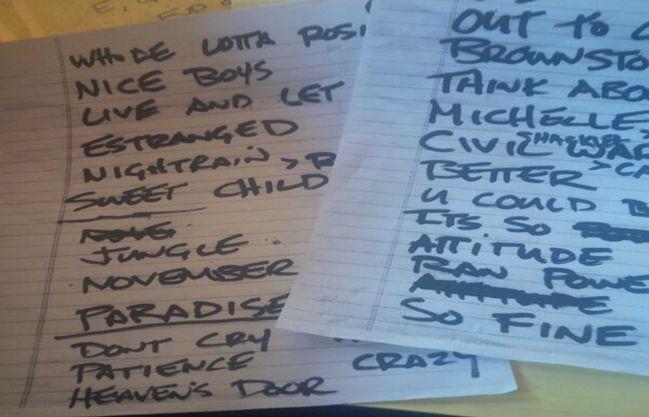 WHOLE LOTTA ROSI
NICE BOYS
LIVE AND LET
ESTRANGED
NIGHTRAIN > R
SWEET CHILD
JUNGLE
NOVEMBER
PARADISE
DONT CRY
PATIENCE CRAZY
HEAVEN'S DOOR
OUT TO
BROWNSTO
THINK ABO
MICHELLE
SHACKLER
CIVIL WAR
BETTER > CA
U COULD B
ITS SO
ATTITUDE
RAW POWE
SO FINE